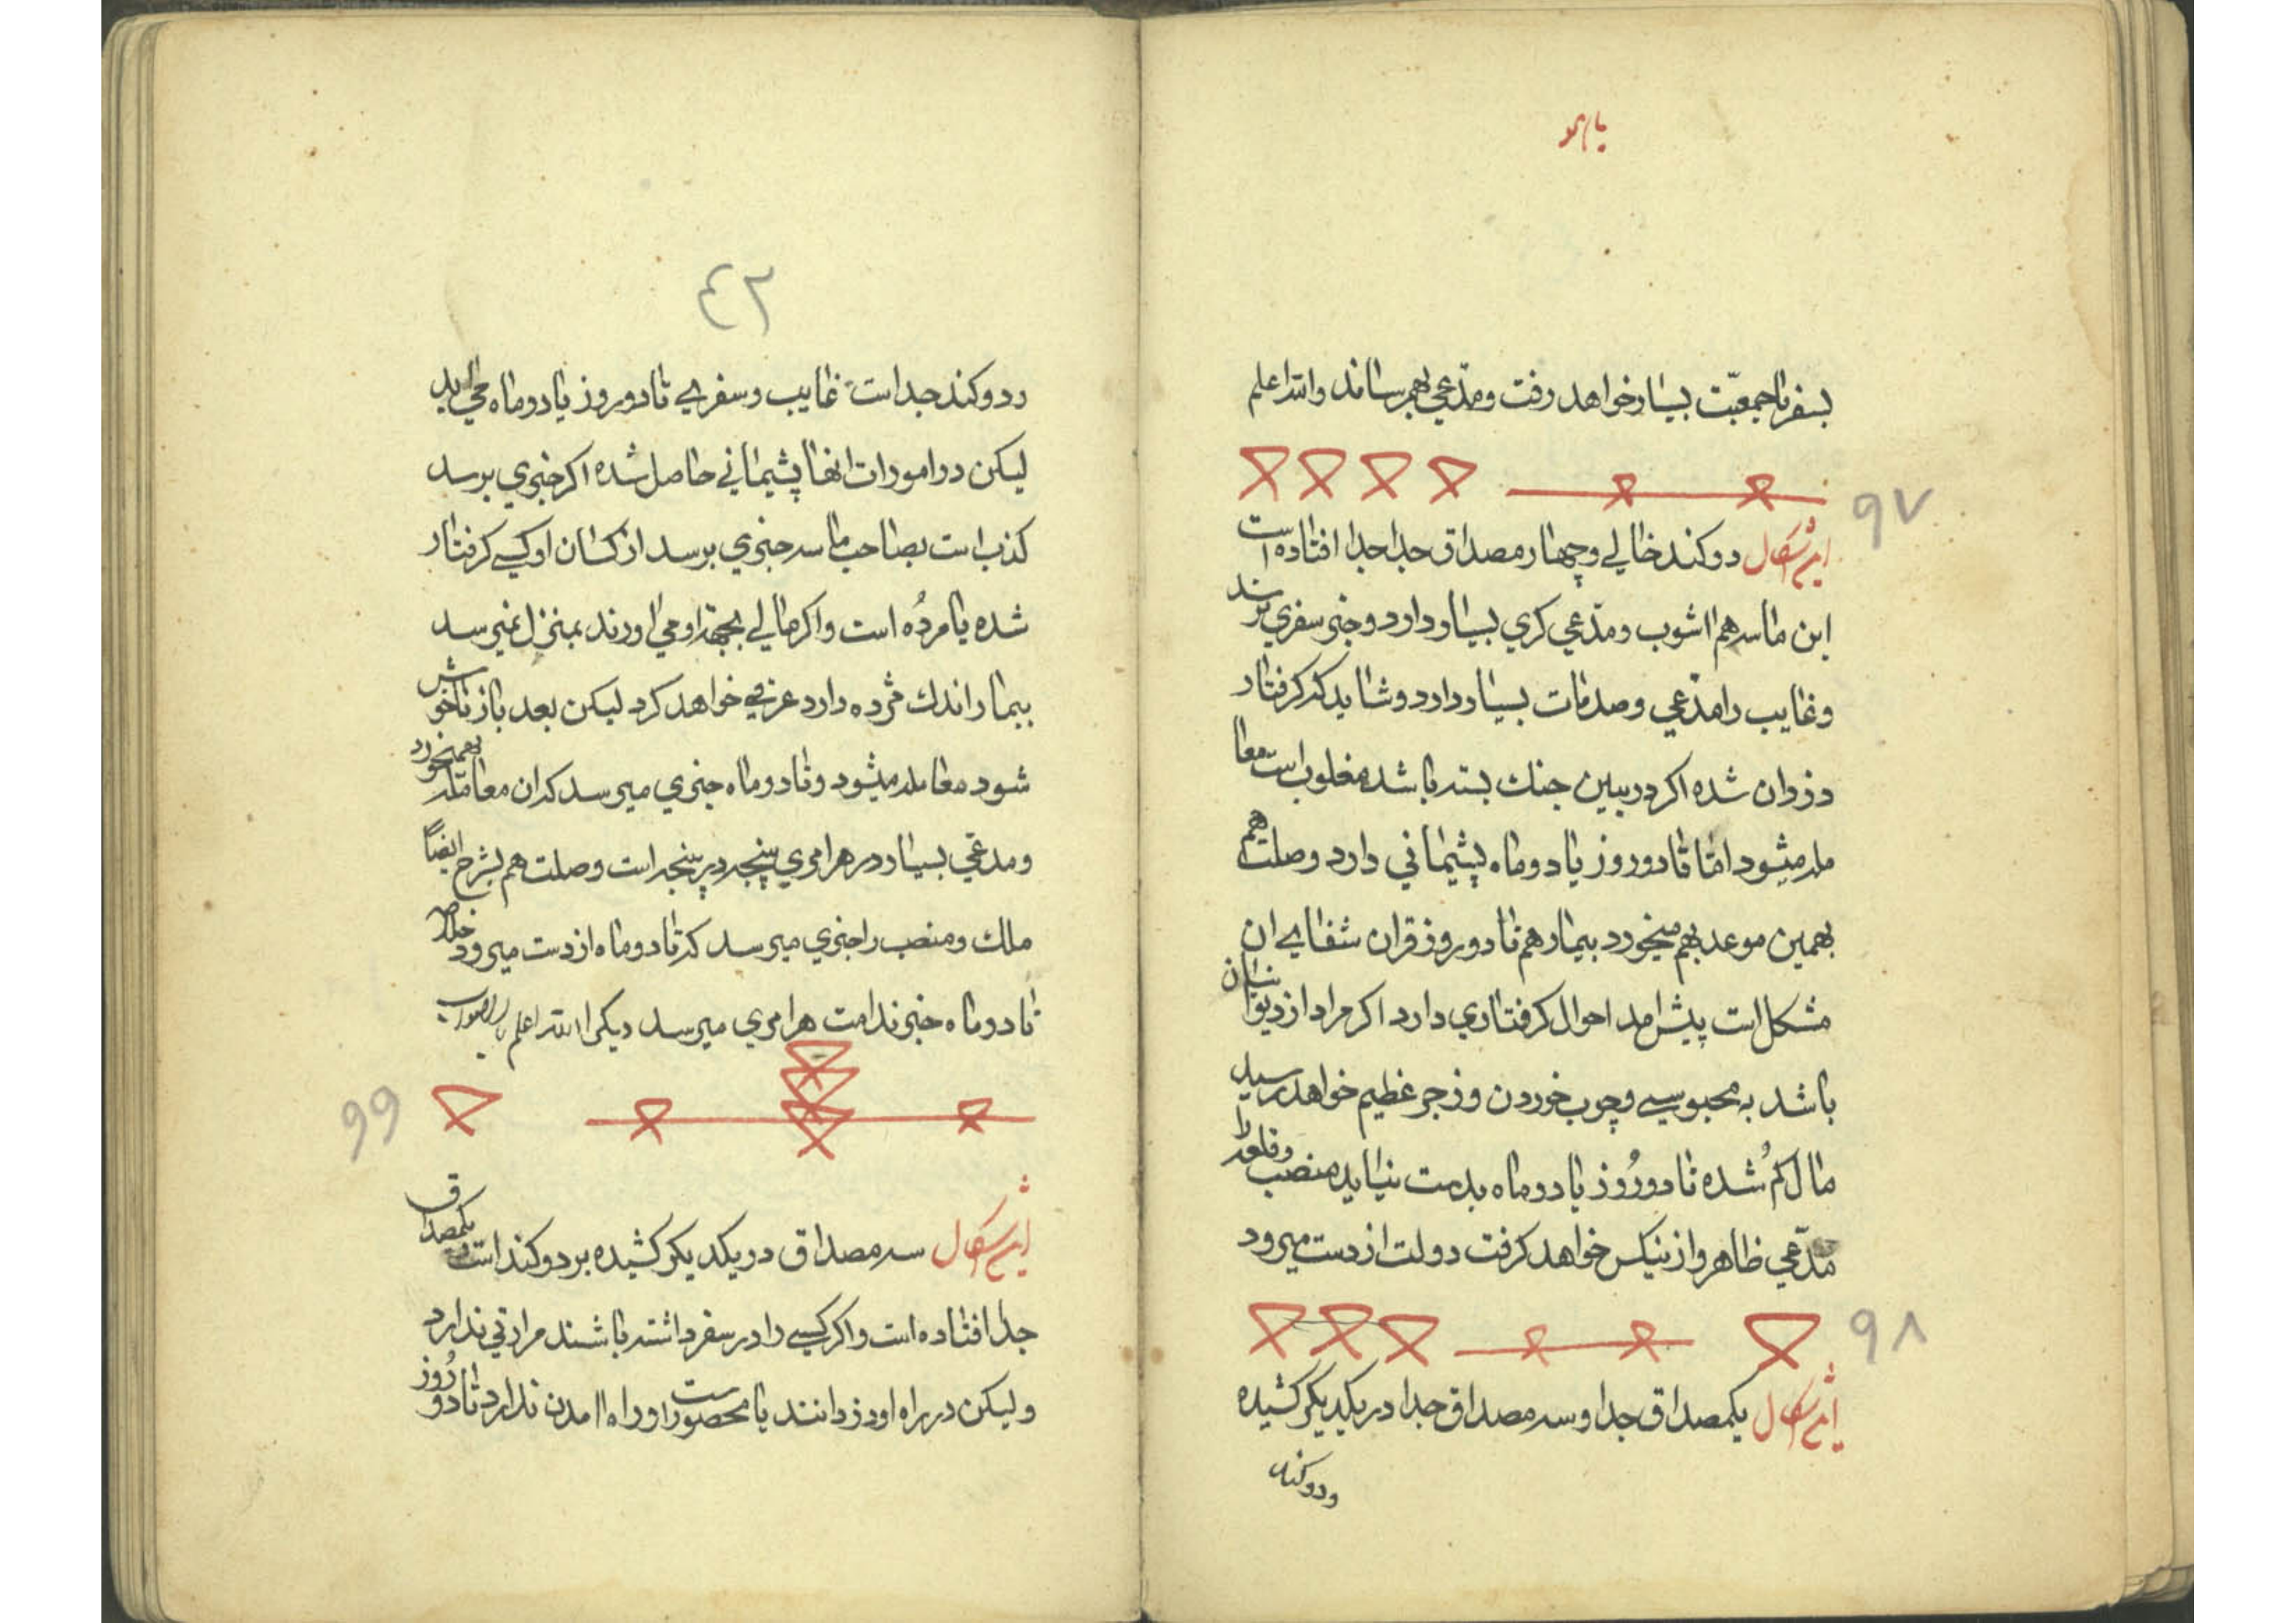 بسفر با جمعیّت بسیار خواهد رفت و مدّعی بهم رساند والله اعلم
۹۷
این شکال دو کند خالی و چهار مصداق جدا جدا افتاده است
این ماسه هم اشوب و مدّعی کری بسیار دارد و خبر سفری پرسند
و غایب را مدّعی و صدمات بسیار دارد و شاید که کرفتار
دزدان شده اکر در بین جنك بسته باشد مغلوب است معا
مله میشود امّا تا دو روز یا دو ماه پشیمانی دارد وصلت هم
بهمین موعد بهم میخورد بیمار هم تا دو روز قران شفای ان
مشکل است پیش امد احوال کرفتاری دارد اکر مراد از دیوانیان
باشد به محبوسی و چوب خوردن و زجر عظیم خواهد رسید
مال کم شده تا دو رُوز یا دو ماه بدست نیاید منصب و قلعه را
مدّعی ظاهر و از نیکس خواهد کرفت دولت از دست میرود
۹۸
این شکال یکمصداق جدا و سه مصداق جدا در یکدیکر کشیده
و دو کند
٤٢
و دو کند جداست غایب و سفری تا دو روز یا دو ماه می اید
لیکن در امورات انها پشیمانی حاصل شده اکر خبری برسد
کذب است بصاحب ماسه خبری برسد از کسان او کسی کرفتار
شده یا مردُه است و اکر مالی بجهة او می اورند بمنزل نمیرسد
بیمار اندك مژده دارد عرقی خواهد کرد لیکن بعد باز ناخوش
شود معامله میشود و تا دو ماه خبری میرسد که ان معامله بهمنخورد
و مدعی بسیار در هر امری پنجه در پنجه است وصلت هم بشرح ایضاً
ملك و منصب را خبری میرسد که تا دو ماه از دست میرود خلاصه
تا دو ماه خبر ندامت هر امری میرسد دیکر الله اعلم بالصواب
۹۹
این شکال سه مصداق در یکدیکر کشیده بر دو کند است یکمصداق
جدا افتاده است و اکر کسی را در سفر داشته باشند مرادتی ندارد
و لیکن در راه او دزدانند یا محصور است او راه امدن ندارد تا دو رُوز